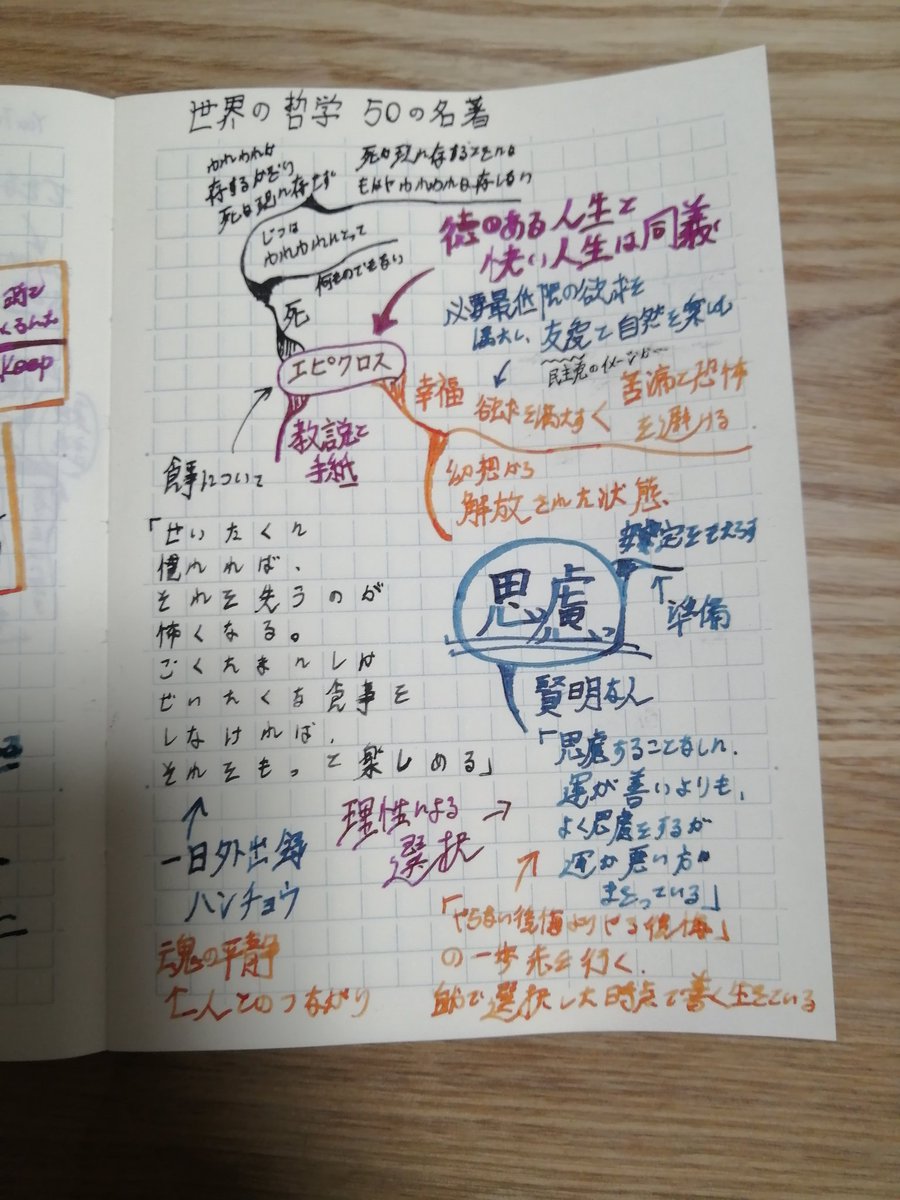 世界の哲学 50の名著
われわれは
存するかぎり
死は現に存せず
死が現に存するときには
もはやわれわれは存しない
じつは
われわれにとって
何ものでもない
死
徳のある人生と
快い人生は同義
必要最低限の欲求を
満たし、友愛と自然を楽しむ
民主党のイメージが
エピクロス
幸福
欲求を満たすく
苦痛と恐怖
を避ける
教説と
手紙
幻想から
解放された状態
食事について
「せいたくに
慣れれば、
それを失うのが
怖くなる。
ごくたまにしか
ぜいたくな食事を
しなければ、
それをもっと楽しめる」
↑
一日外出録
ハンチョウ
思慮
安定をもたらす
↑
準備
賢明な人
「思慮することなしに、
運が善いよりも、
よく思慮をするが
運が悪い方が
まさっている」
理性による →
選択
「やらない後悔よりやる後悔」
の一歩先を行く.
自分で選択した時点で善く生きている
魂の平静
↑人とのつながり
時を
くるんだ
Keep